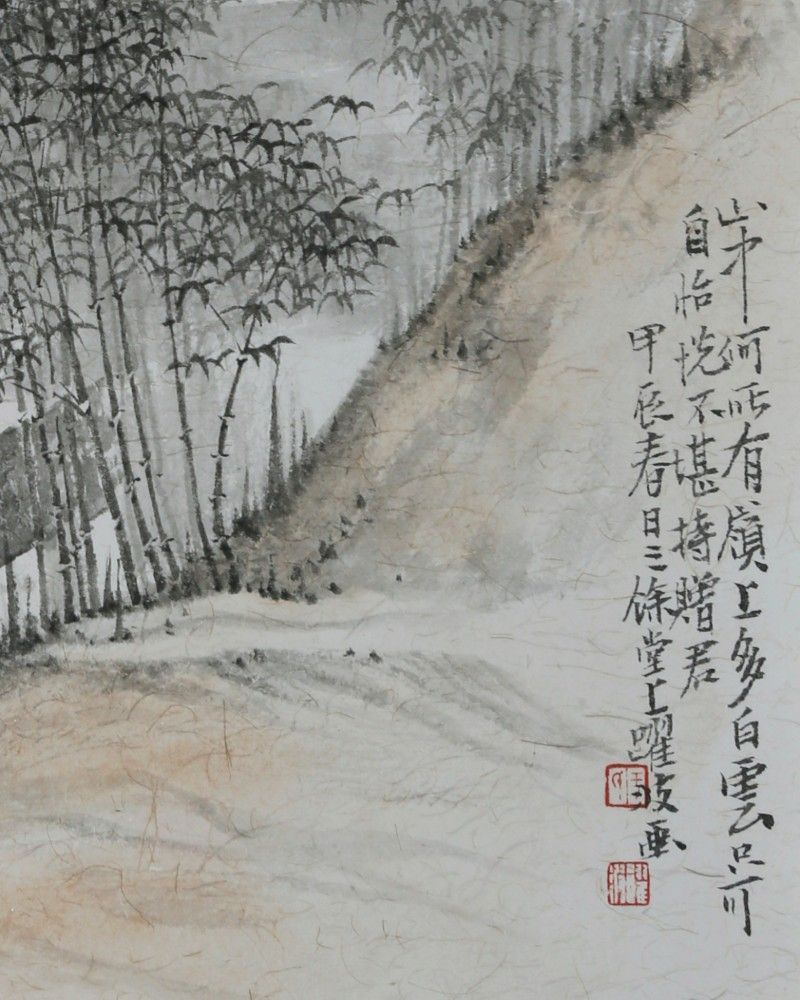 山中何所有嶺上多白雲只可
自怡悦不堪持贈君
甲辰春日三餘堂上躍波画